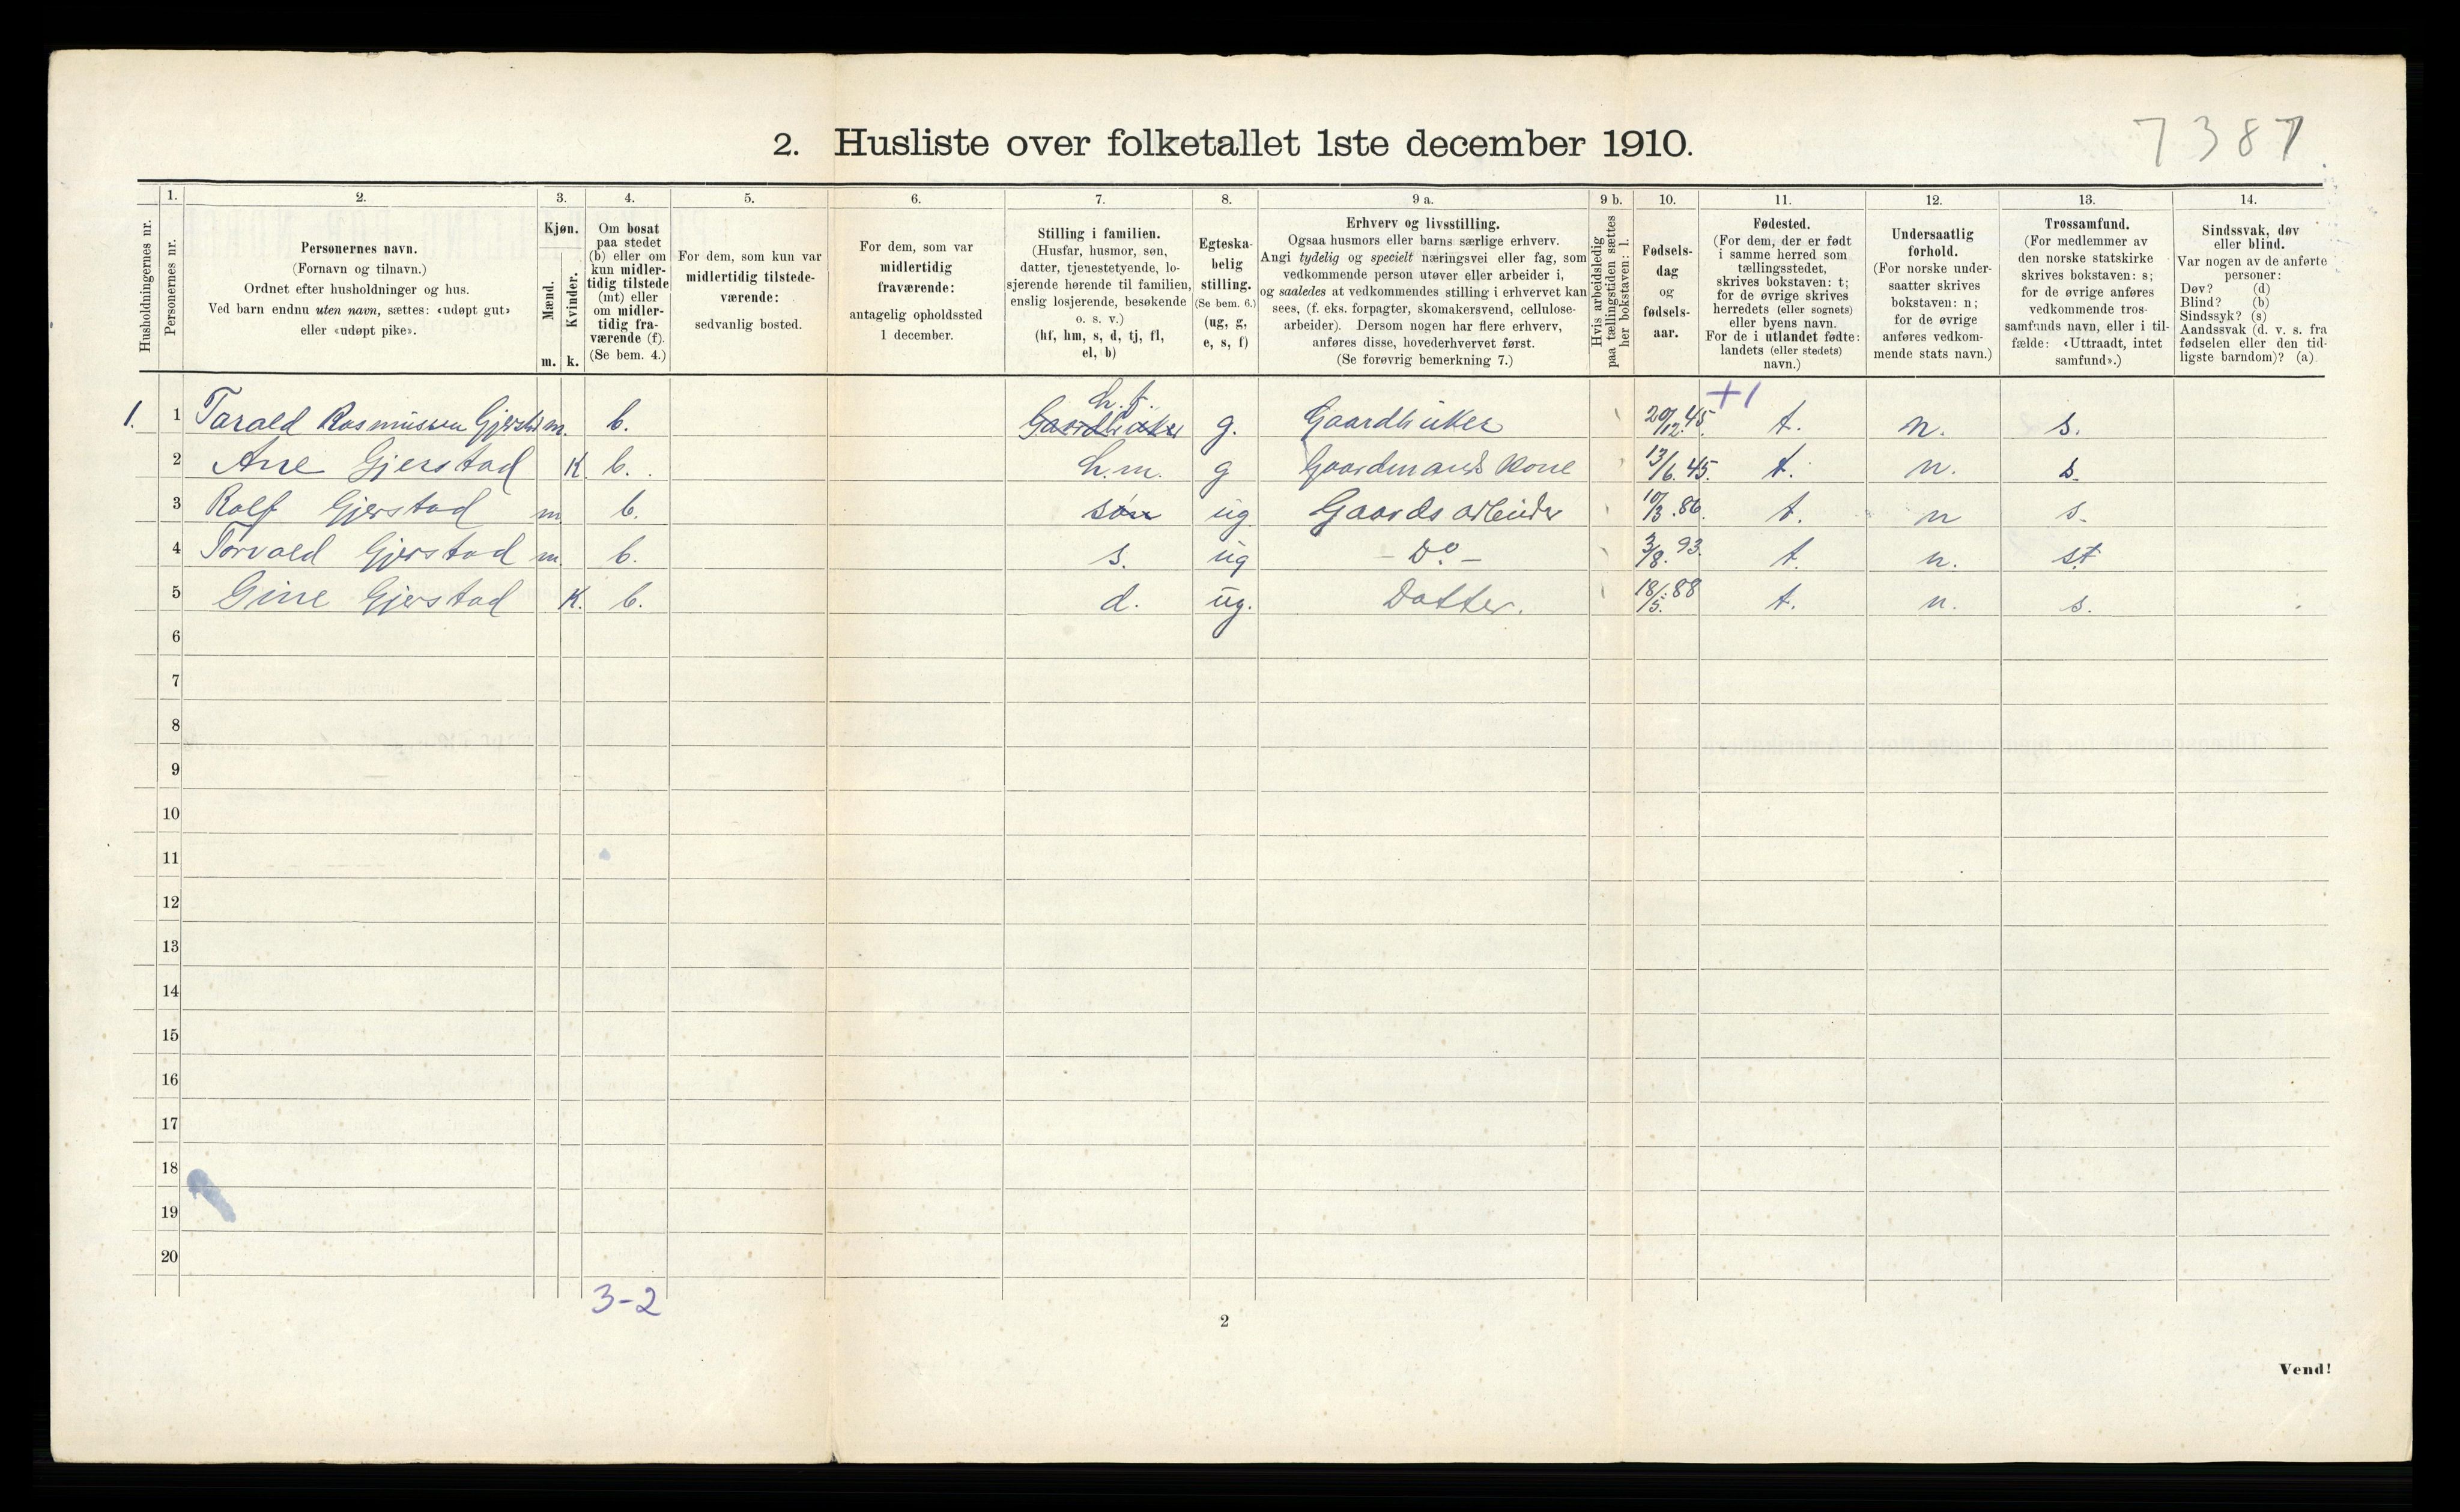 7387
2. Husliste over folketallet 1ste december 1910.
Husholdningernes nr.
1.
Personernes nr.
2.
Personernes navn.
(Fornavn og tilnavn.)
Ordnet efter husholdninger og hus.
Ved barn endnu uten navn, sættes: «udøpt gut»
eller «udøpt pike».
3.
Kjøn.
Mænd.
Kvinder.
m. k.
4.
Om bosat
paa stedet
(b) eller om
kun midler-
tidig tilstede
(mt) eller
om midler-
tidig fra-
værende (f).
(Se bem. 4.)
5.
For dem, som kun var
midlertidig tilstede-
værende:
sedvanlig bosted.
6.
For dem, som var
midlertidig
fraværende:
antagelig opholdssted
1 december.
7.
Stilling i familien.
(Husfar, husmor, søn,
datter, tjenestetyende, lo-
sjerende hørende til familien,
enslig losjerende, besøkende
o. s. v.)
(hf, hm, s, d, tj, fl,
el, b)
8.
Egteska-
belig
stilling.
(Se bem. 6.)
(ug, g,
e, s, f)
9 a.
Erhverv og livsstilling.
Ogsaa husmors eller barns særlige erhverv.
Angi tydelig og specielt næringsvei eller fag, som
vedkommende person utøver eller arbeider i,
og saaledes at vedkommendes stilling i erhvervet kan
sees, (f. eks. forpagter, skomakersvend, cellulose-
arbeider). Dersom nogen har flere erhverv,
anføres disse, hovederhvervet først.
(Se forøvrig bemerkning 7.)
9 b.
Hvis arbeidsledig
paa tællingstiden sættes
her bokstaven: l.
10.
Fødsels-
dag
og
fødsels-
aar.
11.
Fødested.
(For dem, der er født
i samme herred som
tællingsstedet,
skrives bokstaven: t;
for de øvrige skrives
herredets (eller sognets)
eller byens navn.
For de i utlandet fødte:
landets (eller stedets)
navn.)
12.
Undersaatlig
forhold.
(For norske under-
saatter skrives
bokstaven: n;
for de øvrige
anføres vedkom-
mende stats navn.)
13.
Trossamfund.
(For medlemmer av
den norske statskirke
skrives bokstaven: s;
for de øvrige anføres
vedkommende tros-
samfunds navn, eller i til-
fælde: «Uttraadt, intet
samfund».)
14.
Sindssvak, døv
eller blind.
Var nogen av de anførte
personer:
Døv? (d)
Blind? (b)
Sindssyk? (s)
Aandssvak (d. v. s. fra
fødselen eller den tid-
ligste barndom)? (a).
h.f. +1
1. 1 Tarald Rasmussen m. b. Gaardbruker g. Gaardbruker 20/12.45. t. n. s.
2 Ane Gjerstad K b. h.m. g Gaardmands Kone 13/6.45. t. n. s.
3 Rolf Gjerstad m b. søn ug Gaards arbeider 10/3.86. t. n s.
4 Torvald Gjerstad m. b. s. ug - Do. - 3/8.93. t. n. st
5 Gine Gjerstad K. b. d. ug. Datter. 18/5.88 t. n. s.
6
7
8
9
10
11
12
13
14
15
16
17
18
19
20
3-2
2
Vend!